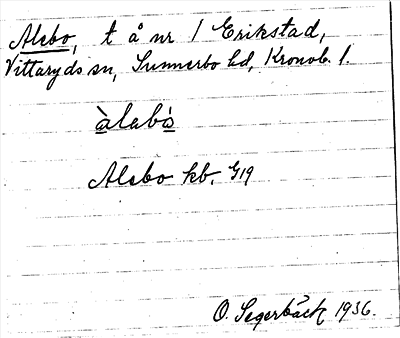 Alebo, t å nr 1 Erikstad,
Vittaryds sn, Sunnerbo hd, Kronob. l.
àlabó
Alebo kb. G19
O. Segerbäck 1936.